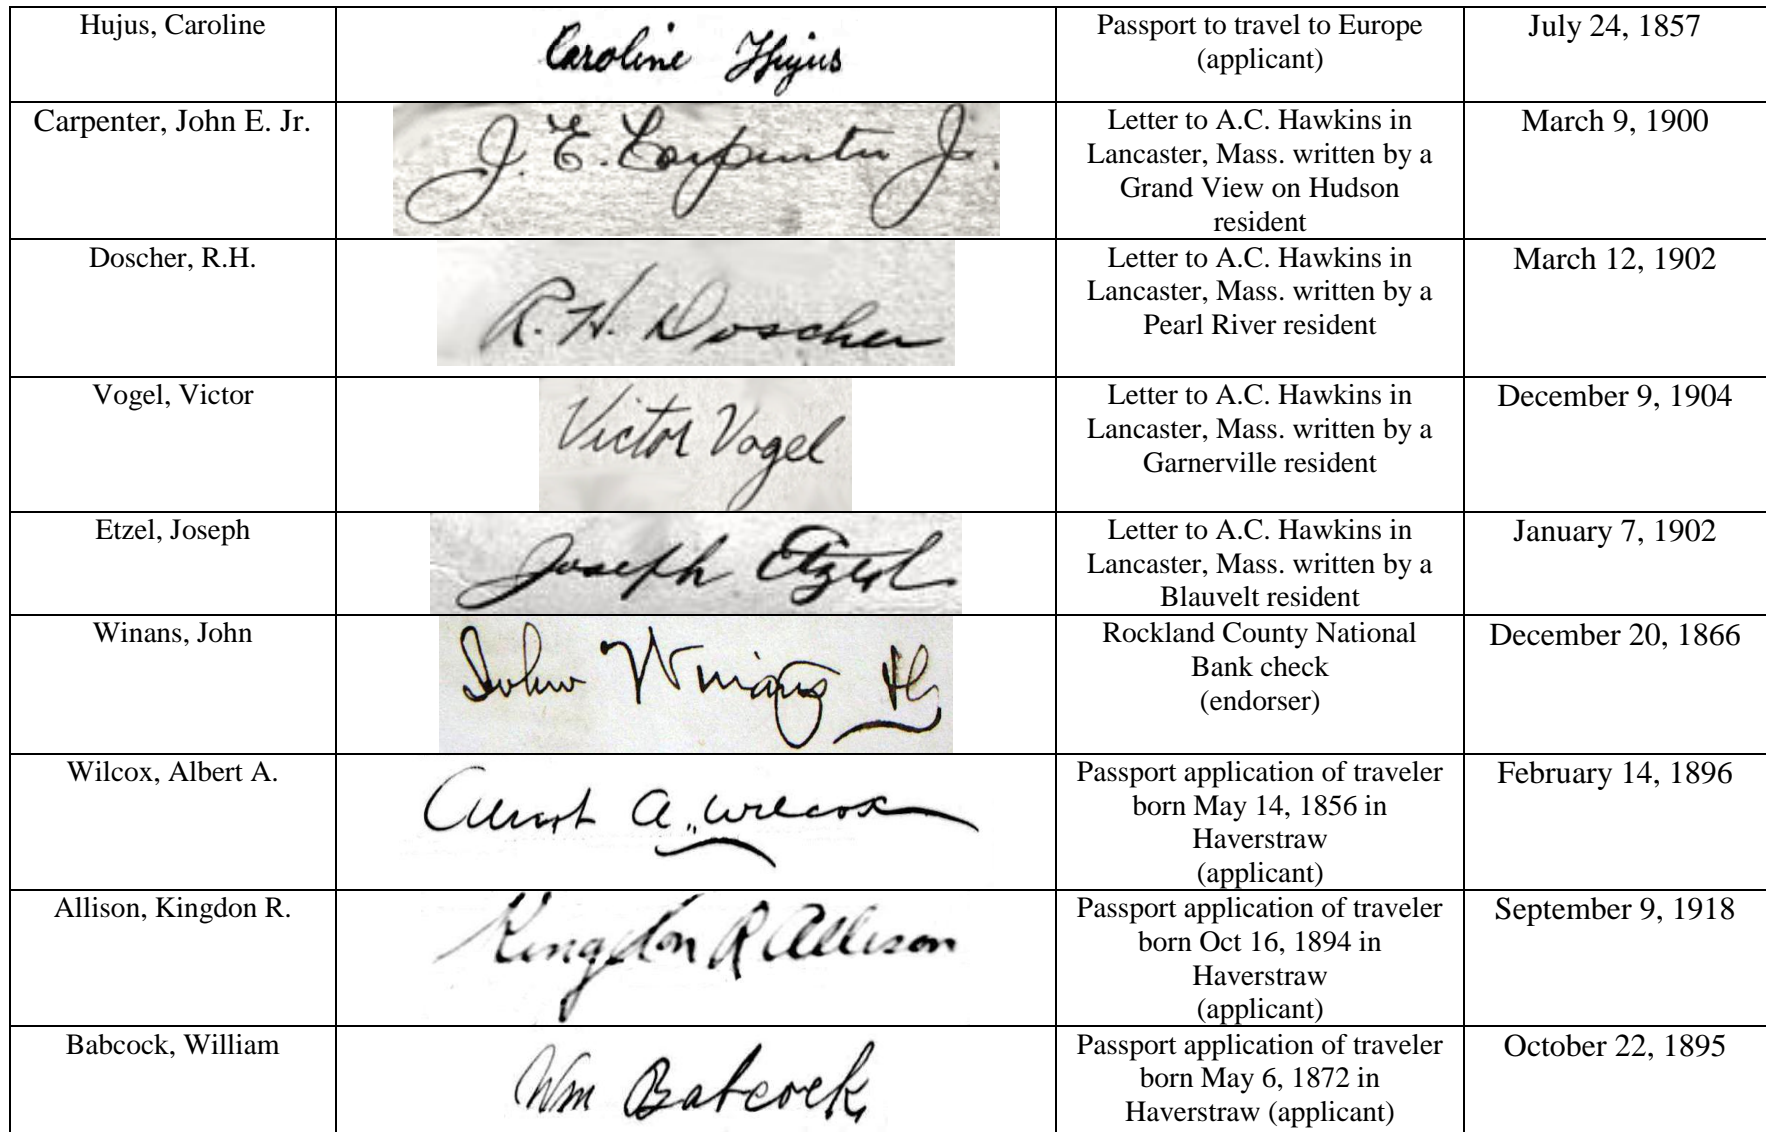 Hujus, Caroline
Caroline Hujus
Passport to travel to Europe
(applicant)
July 24, 1857
Carpenter, John E. Jr.
J. E. Carpenter Jr.
Letter to A.C. Hawkins in
Lancaster, Mass. written by a
Grand View on Hudson
resident
March 9, 1900
Doscher, R.H.
R. H. Doscher
Letter to A.C. Hawkins in
Lancaster, Mass. written by a
Pearl River resident
March 12, 1902
Vogel, Victor
Victor Vogel
Letter to A.C. Hawkins in
Lancaster, Mass. written by a
Garnerville resident
December 9, 1904
Etzel, Joseph
Joseph Etzel
Letter to A.C. Hawkins in
Lancaster, Mass. written by a
Blauvelt resident
January 7, 1902
Winans, John
John Winans
Rockland County National
Bank check
(endorser)
December 20, 1866
Wilcox, Albert A.
Albert A. Wilcox
Passport application of traveler
born May 14, 1856 in
Haverstraw
(applicant)
February 14, 1896
Allison, Kingdon R.
Kingdon R Allison
Passport application of traveler
born Oct 16, 1894 in
Haverstraw
(applicant)
September 9, 1918
Babcock, William
Wm Babcock
Passport application of traveler
born May 6, 1872 in
Haverstraw (applicant)
October 22, 1895